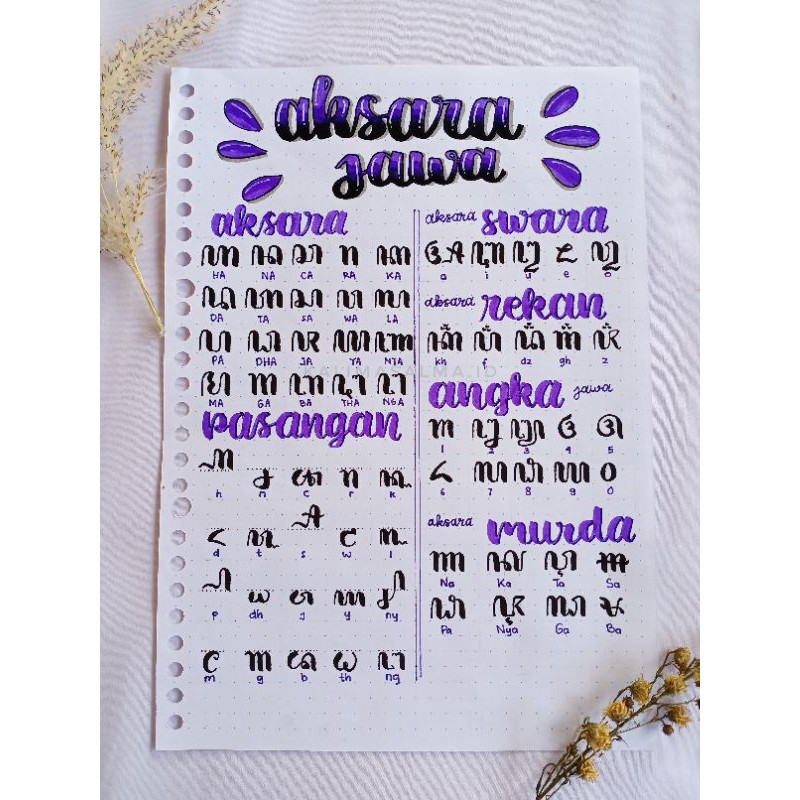 aksara
jawa
aksara
ꦲ ꦤ ꦕ ꦫ ꦏ
HA NA CA RA KA
ꦢ ꦠ ꦱ ꦮ ꦭ
DA TA SA WA LA
ꦥ ꦝ ꦗ ꦪ ꦚ
PA DHA JA YA NYA
KALIMASALMA.ID
ꦩ ꦒ ꦧ ꦛ ꦔ
MA GA BA THA NGA
pasangan
꧀ꦲ ꧀ꦤ ꧀ꦕ ꧀ꦫ ꧀ꦏ
h n c r k
꧀ꦢ ꧀ꦠ ꧀ꦱ ꧀ꦮ ꧀ꦭ
d t s w l
꧀ꦥ ꧀ꦝ ꧀ꦗ ꧀ꦪ ꧀ꦚ
p dh j y ny
꧀ꦩ ꧀ꦒ ꧀ꦧ ꧀ꦛ ꧀ꦔ
m g b th ng
aksara swara
ꦄ ꦆ ꦈ ꦌ ꦎ
a i u e o
aksara rekan
ꦏ꦳ ꦥ꦳ ꦢ꦳ ꦒ꦳ ꦗ꦳
kh f dz gh z
angka jawa
꧑ ꧒ ꧓ ꧔ ꧕
1 2 3 4 5
꧖ ꧗ ꧘ ꧙ ꧐
6 7 8 9 0
aksara murda
ꦟ ꦑ ꦡ ꦯ
Na Ka Ta Sa
ꦦ ꦘ ꦓ ꦨ
Pa Nya Ga Ba